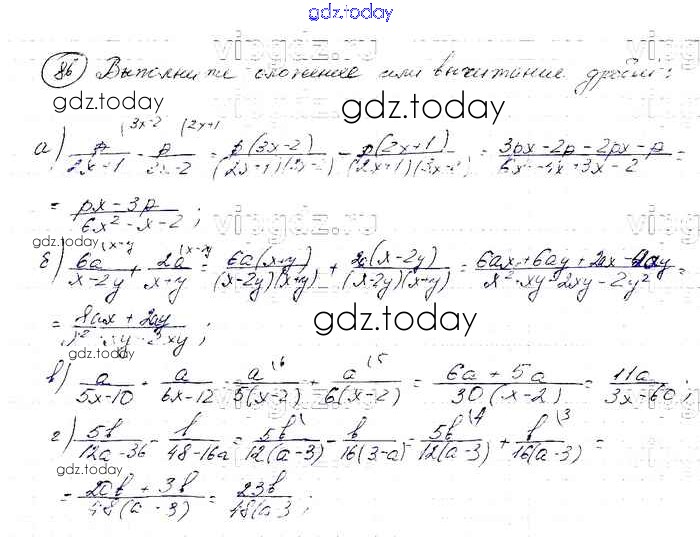 gdz.today
86) Выполните сложение или вычитание дробей:
gdz.today
а) p/(2x+1) (3x-2 - p/(3x-2) (2x+1 = p(3x-2)/(2x+1)(3x-2) - p(2x+1)/(2x+1)(3x-2) = (3px-2p-2px-p)/(6x²-4x+3x-2) =
= (px-3p)/(6x²-x-2);
gdz.today
gdz.today
б) 6a/(x-2y) (x+y + 2a/(x+y) (x-2y = 6a(x+y)/(x-2y)(x+y) + 2a(x-2y)/(x-2y)(x+y) = (6ax+6ay+2ax-4ay)/(x²+xy-2xy-2y²) =
= (8ax+2ay)/ ;
gdz.today
gdz.today
в) a/(5x-10) + a/(6x-12) = a(6/5(x-2) + a(5/6(x-2) = (6a+5a)/30(x-2) = 11a/(3x-60);
г) 5b/(12a-36) - b/(48-16a) = 5b/12(a-3) - b/16(3-a) = 5b(4/12(a-3) + b(3/16(a-3) =
gdz.today
= (20b+3b)/48(a-3) = 23b/48(a-3;
gdz.today